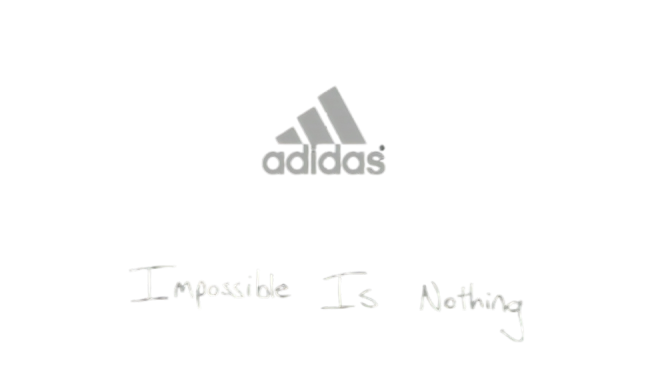 adidas
Impossible Is Nothing